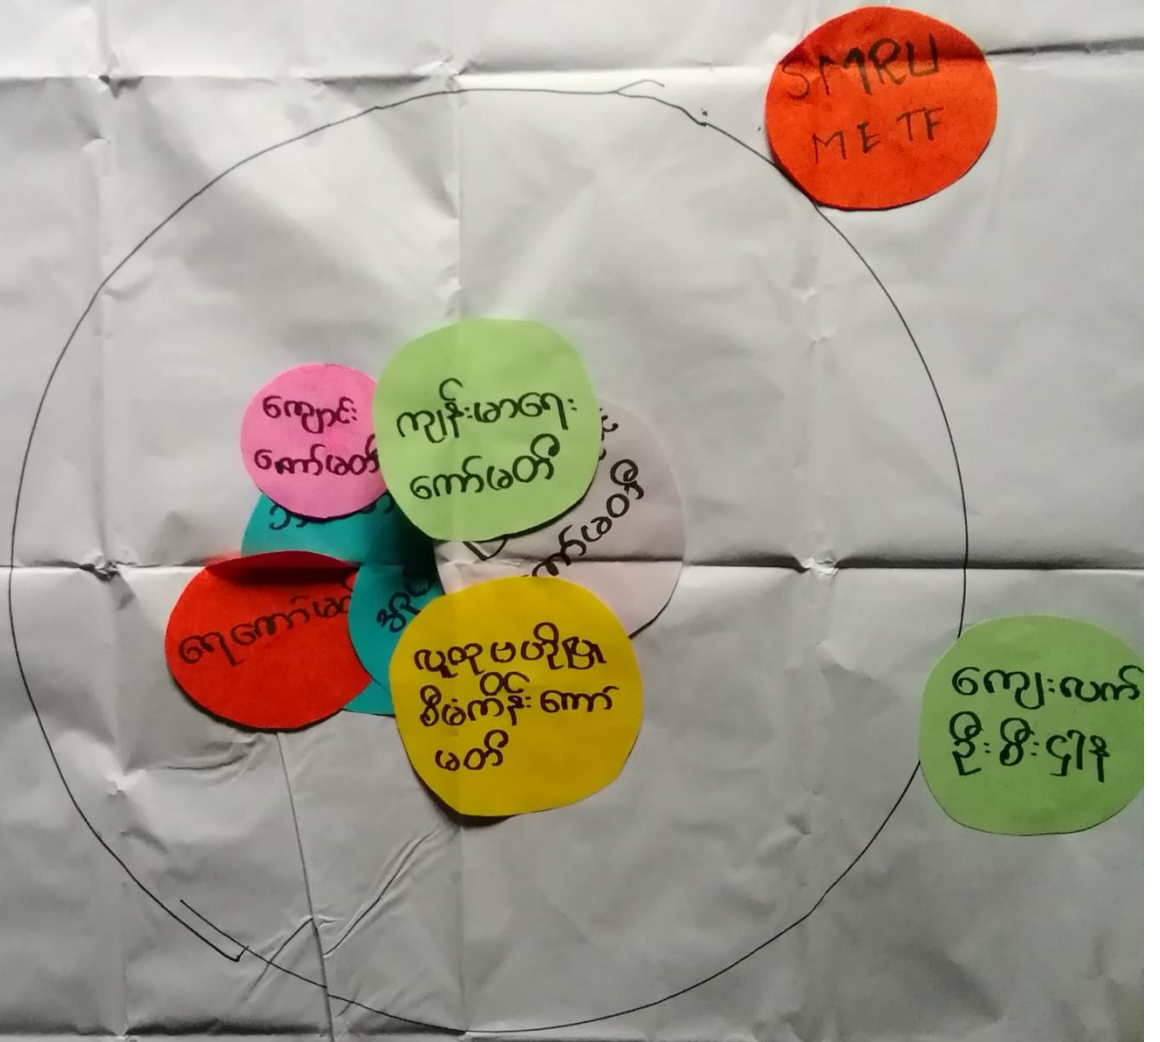 SMRU
METF
ကျောင်း
ကော်မတီ
ကျန်းမာရေး
ကော်မတီ
ကော်မတီ
ရေကော်မတီ
လူထုဗဟိုပြု
စီမံကိန်း ကော်
မတီ
ကျေးလက်
ဦးစီးဌါန